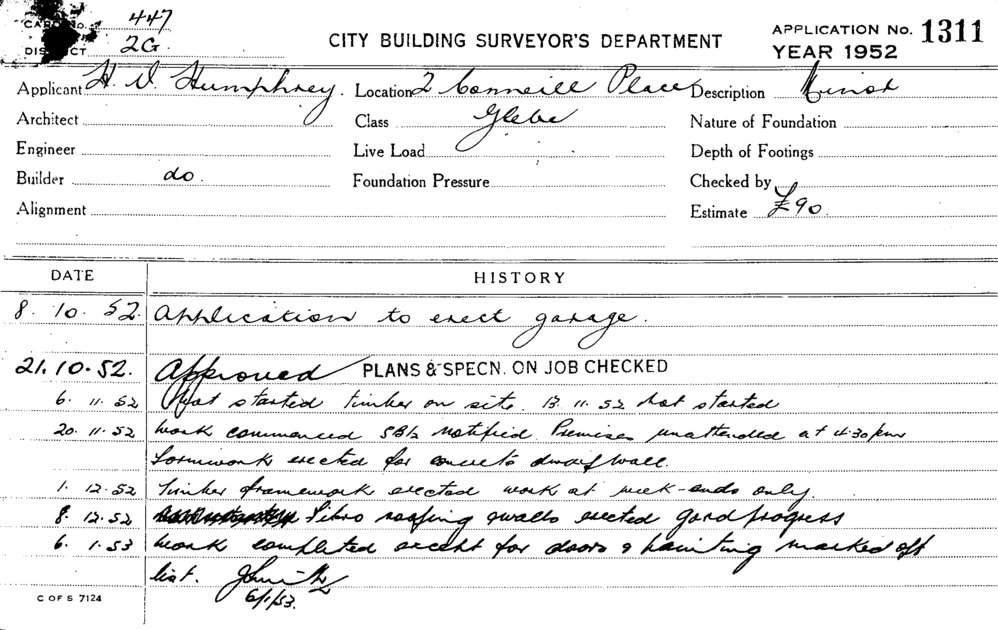 CARD No. 447
DISTRICT 2G.
CITY BUILDING SURVEYOR'S DEPARTMENT
APPLICATION No. 1311
YEAR 1952
Applicant H. V. Humphrey. Location 2 Conneill Place Description Minor
Architect Class Glebe Nature of Foundation
Engineer Live Load Depth of Footings
Builder do. Foundation Pressure Checked by
Alignment Estimate £90.
DATE HISTORY
8. 10. 52. Application to erect garage.
21.10.52. Approved PLANS & SPECN. ON JOB CHECKED
6. 11. 52 Not started timber on site. 13. 11. 52 Not started
20. 11. 52 Work commenced notified Premises unattended at 4.30pm
Formwork erected for concrete dwarf wall.
1. 12. 52 Timber framework erected work at week-ends only.
8. 12. 52 Fibro roofing & walls erected good progress
6. 1. 53 Work completed except for doors & painting marked off
list.
6/1/53.
C OF S 7124